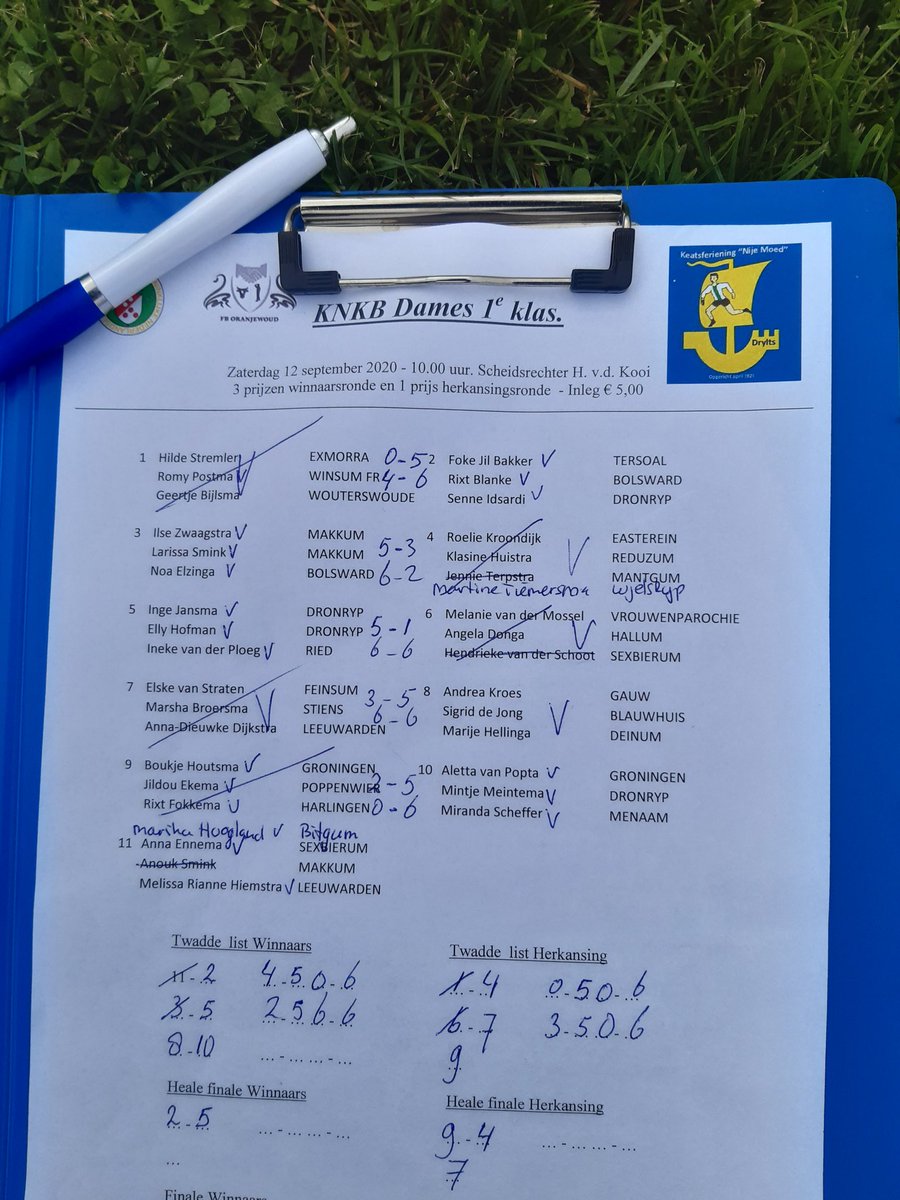 Keatsferiening "Nije Moed"
Drylts
Opgericht april 1921
FB ORANJEWOUD
KNKB Dames 1e klas.
Zaterdag 12 september 2020 - 10.00 uur. Scheidsrechter H. v.d. Kooi
3 prijzen winnaarsronde en 1 prijs herkansingsronde - Inleg € 5,00
1 Hilde Stremler EXMORRA 0-5 2 Foke Jil Bakker V TERSOAL
Romy Postma V WINSUM FR 4-6 Rixt Blanke V BOLSWARD
Geertje Bijlsma WOUTERSWOUDE Senne Idsardi V DRONRYP
3 Ilse Zwaagstra V MAKKUM 4 Roelie Kroondijk EASTEREIN
Larissa Smink V MAKKUM 5-3 Klasine Huistra V REDUZUM
Noa Elzinga V BOLSWARD 6-2 Jennie Terpstra MANTGUM
Martine Tiemersma Wjelsryp
5 Inge Jansma V DRONRYP 6 Melanie van der Mossel VROUWENPAROCHIE
Elly Hofman V DRONRYP 5-1 Angela Donga V HALLUM
Ineke van der Ploeg V RIED 6-6 Hendrieke van der Schoot SEXBIERUM
7 Elske van Straten FEINSUM 3-5 8 Andrea Kroes GAUW
Marsha Broersma V STIENS 6-6 Sigrid de Jong V BLAUWHUIS
Anna-Dieuwke Dijkstra LEEUWARDEN Marije Hellinga DEINUM
9 Boukje Houtsma V GRONINGEN 10 Aletta van Popta V GRONINGEN
Jildou Ekema V POPPENWIER 2-5 Mintje Meintema V DRONRYP
Rixt Fokkema V HARLINGEN 0-6 Miranda Scheffer V MENAAM
Marika Hoogland V Bitgum
11 Anna Ennema V SEXBIERUM
Anouk Smink MAKKUM
Melissa Rianne Hiemstra V LEEUWARDEN
Twadde list Winnaars Twadde list Herkansing
11-2 4-5 0-6 1-4 0-5 0-6
3-5 2 5 6-6 6-7 3-5 0-6
8-10 ...-... ...-... 9
Heale finale Winnaars Heale finale Herkansing
2-5 ...-... ...-... 9-4 ...-... ...-...
... 7
Finale Winnaars